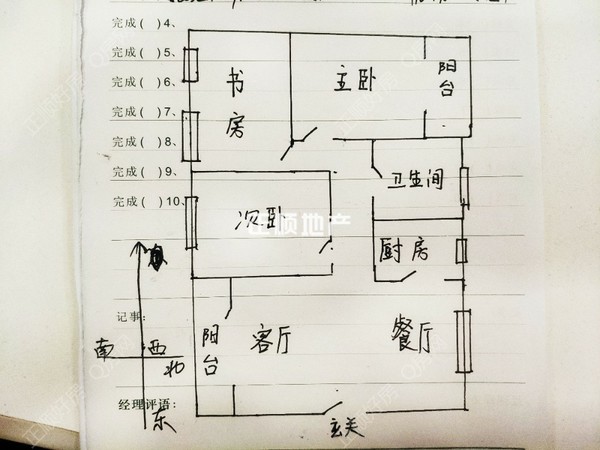 完成( )4、
完成( )5、
完成( )6、
完成( )7、
完成( )8、
完成( )9、
完成( )10、
书房
主卧
阳台
卫生间
次卧
正顺地产
厨房
记事:
南 西 北
东
阳台
客厅
餐厅
经理评语:
玄关